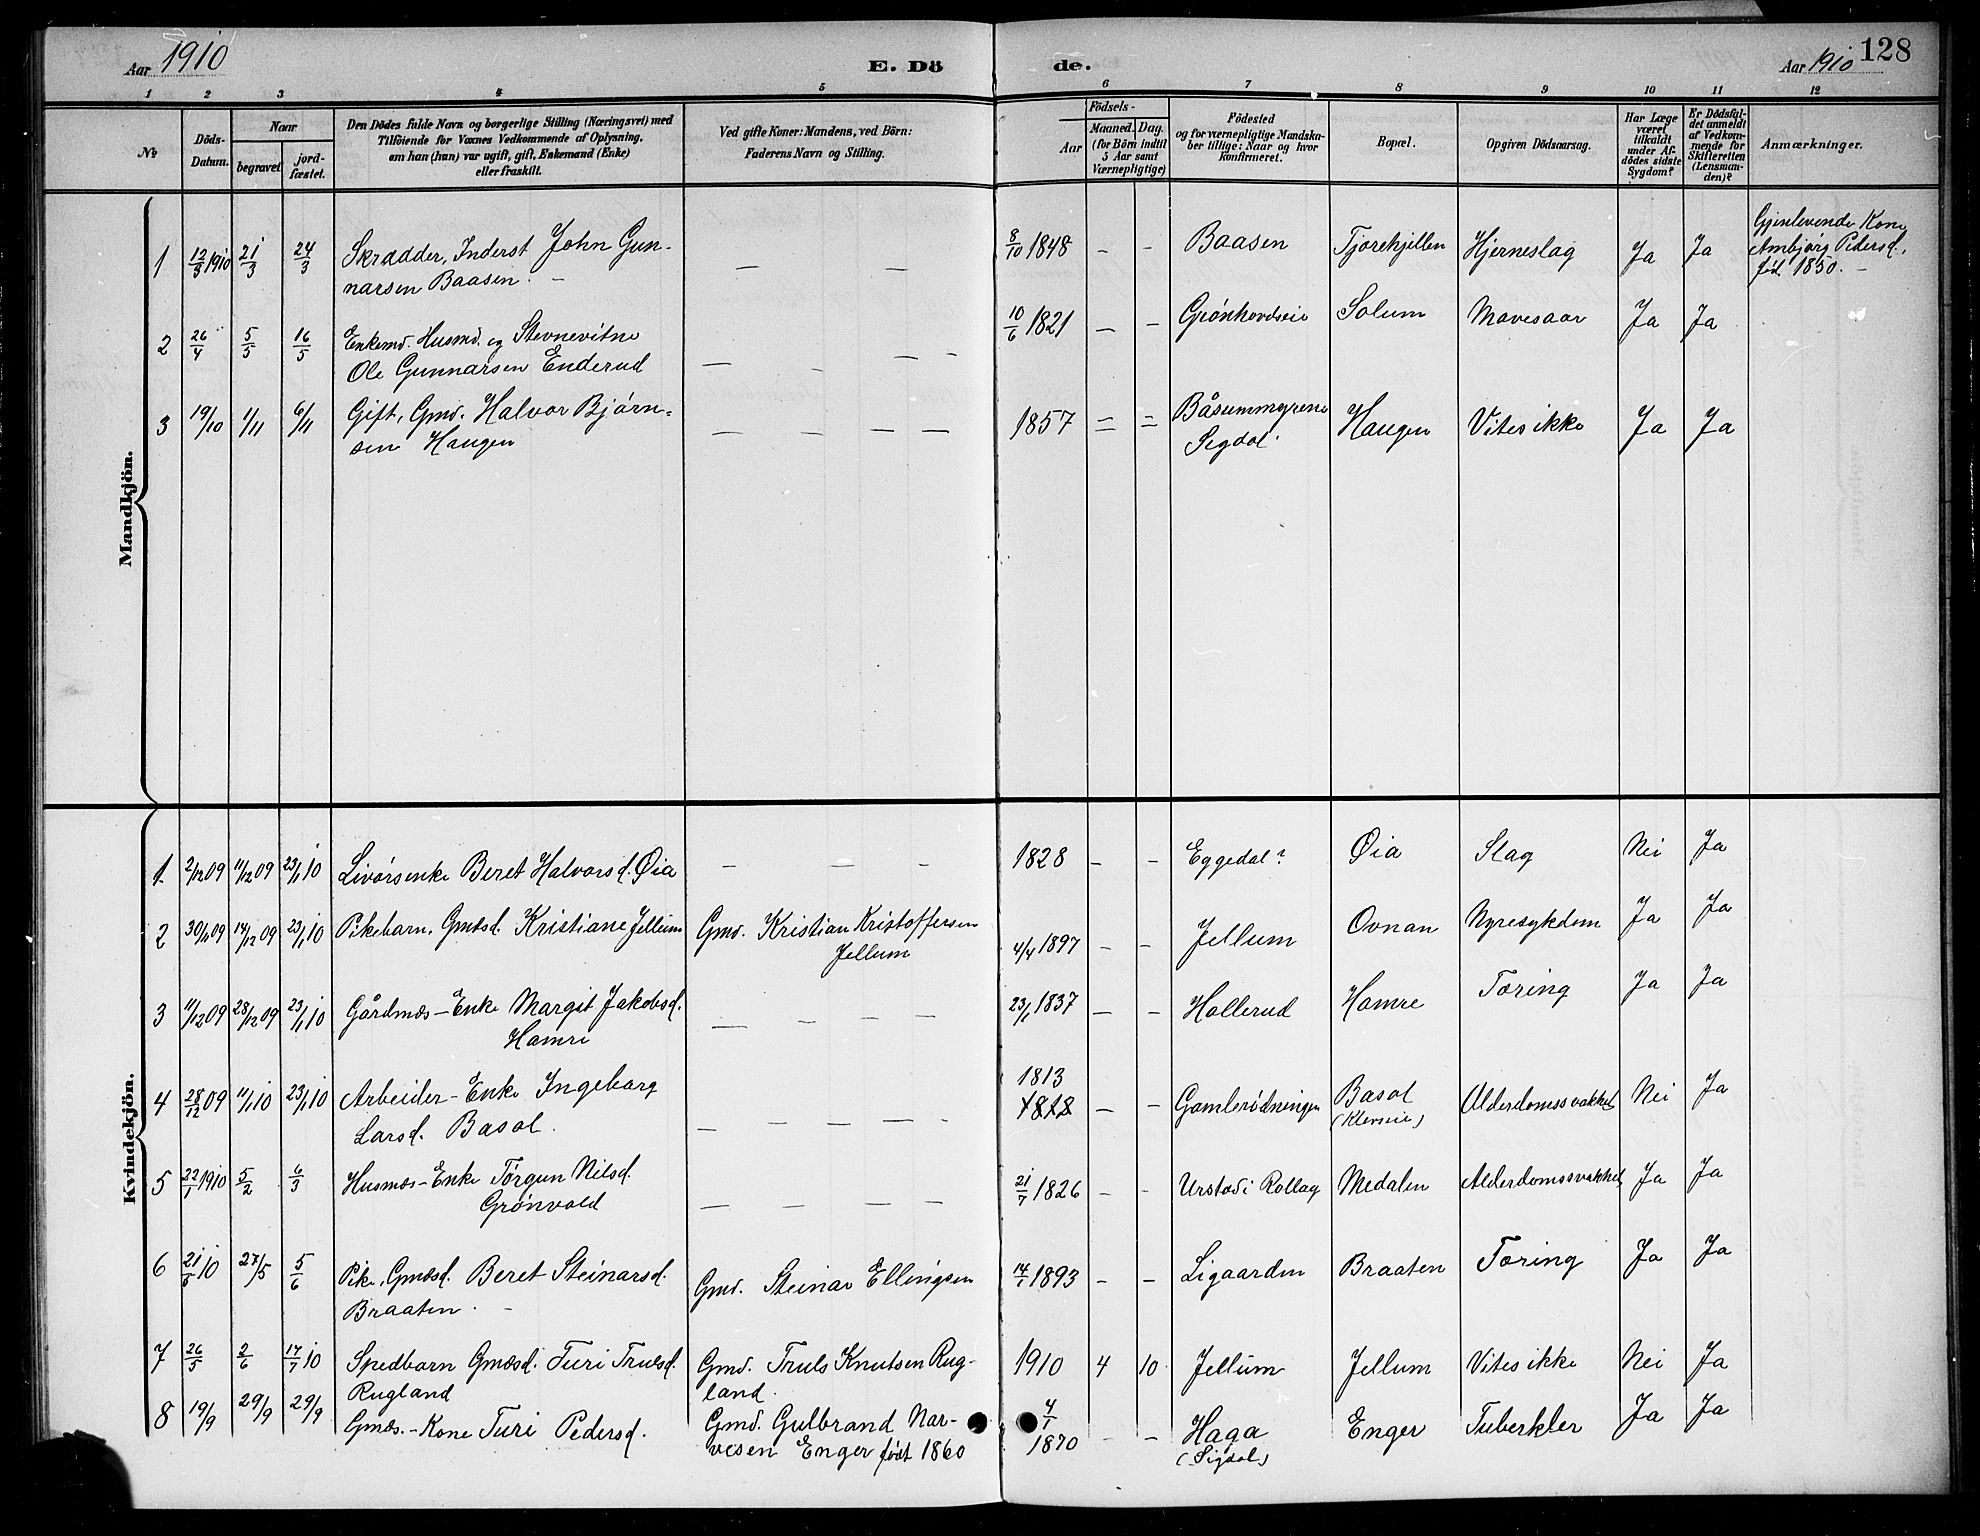 Aar 1910
E. Dö
de.
Aar 1910
128
1 2 3 4 5 6 7 8 9 10 11 12
№
Döds-
Datum.
Naar
begravet
jord-
fæstet.
Den Dödes fulde Navn og borgerlige Stilling (Næringsvei) med
Tilföiende for Voxnes Vedkommende af Oplysning,
om han (hun) var ugift, gift, Enkemand (Enke)
eller fraskilt.
Ved gifte Koner: Mandens, ved Börn:
Faderens Navn og Stilling.
Födsels-
Aar
Maaned. Dag.
(for Börn indtil
5 Aar samt
Værnepligtige)
Födested
og for værnepligtige Mandska-
ber tillige: Naar og hvor
konfirmeret.
Bopæl.
Opgiven Dödsaarsag.
Har Læge
været
tilkaldt
under Af-
dödes sidste
Sygdom?
Er Dödsfal-
det anmeldt
af Vedkom-
mende for
Skifteretten
(Lensman-
den)?
Anmærkninger.
Mandkjön.
1 12/3 1910 21/3 24/3 Skrædder, Inderst John Gun-
narsen Baasen. — — — 8/10 1848 — — Baasen Tjorehjellen Hjerneslag Ja Ja Gjenlevende Kone
Ambjørg Pedersd.,
föd 1850. —
2 26/4 5/5 16/5 Enkemd. Husmd. og Stevnevitne
Ole Gunnarsen Enderud — — — — 10/6 1821 — — Grønhovdseie Solum Mavesaar Ja Ja
3 19/10 1/11 6/11 Gift, Gmd. Halvor Bjørn-
sen Haugen — — — — 1857 = = Båsummgrene
Sigdal. Haugen Vites ikke Ja Ja
Kvindekjön.
1 2/12 09 11/12 09 23/1 10 Livörsenke Beret Halvorsd. Øia — — — 1828 — — Eggedal? Øia Slag Nei Ja
2 30/11 09 14/12 09 23/1 10 Pikebarn, Gmdsd. Kristiane Jellum Gmd. Kristian Kristoffersen
Jellum 4/4 1897 — — Jellum Ovnan Nyresykdom Ja Ja
3 11/12 09 28/12 09 23/1 10 Gårdmds-Enke Margit Jakobsd.
Hamre — — — — 23/1 1837 — — Hollerud Hamre Tæring Ja Ja
4 28/12 09 11/1 10 23/1 10 Arbeider-Enke Ingeborg
Larsd. Basol. — — — — — 1813
1818 — — Gamlerødningen Basol
(Kleveeie) Alderdomssvakhet Nei Ja
5 22/1 1910 5/2 6/3 Husmds-Enke Tørgun Nilsd.
Grønvold — — — — 21/7 1826 — — Urstad i Rollag Medalen Alderdomssvakhet Ja Ja
6 21/5 10 27/5 5/6 Pike, Gmdsd. Beret Steinarsd.
Braaten. — Gmd. Steinar Ellingsen 14/1 1893 — — Ligaarden Braaten Tæring Ja Ja
7 26/5 2/6 17/7 10 Spedbarn Gmdsd. Turi Trulsd.
Rugland Gmd. Truls Knutsen Rug-
land. 1910 4 10 Jellum Jellum Vites ikke Nei Ja
8 19/9 29/9 29/9 Gmds.-Kone Turi Pedersd. Gmd. Gulbrand Nar-
vesen Enger født 1860 4/1
1870 — — Haga
(Sigdal) Enger Tuberkler Ja Ja